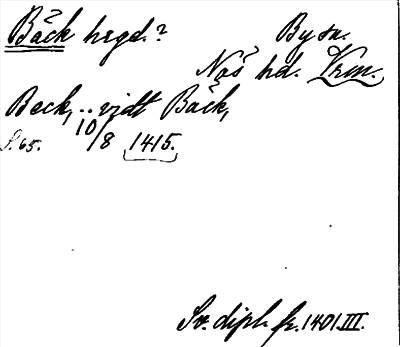 Bäck hrgd.?
By sn.
Näs hd. Vrm.
Beck, .. vidt Bäck,
S. 65. 10/8 1415.
Sv. dipl. fr. 1401. III.